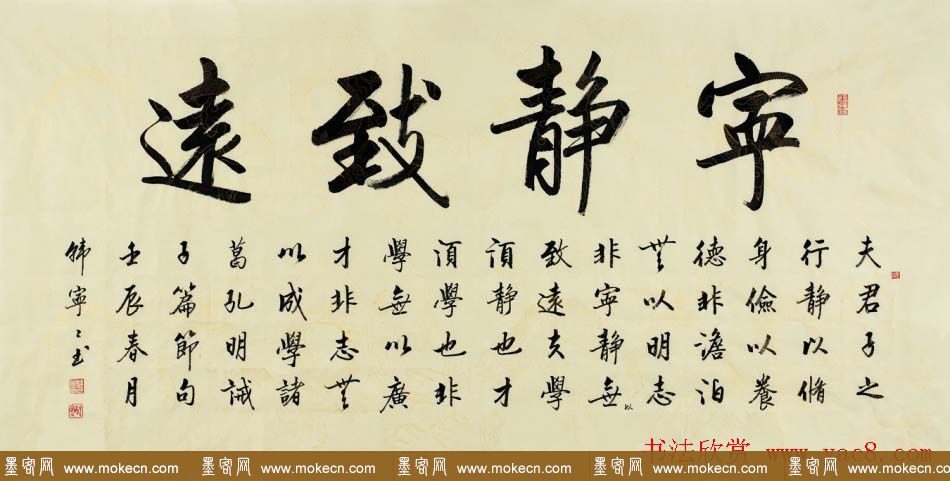 寧静致遠
夫君子之
行静以脩
身儉以養
德非澹泊
無以明志
非寧静無以
致遠夫學
須静也才
須學也非
學無以廣
才非志無
以成學諸
葛孔明誡
子篇節句
壬辰春月
韩寧
书法欣赏 www.yac8.com
墨客网 www.mokecn.com 墨客网 www.mokecn.com 墨客网 www.mokecn.com 墨客网 www.mokecn.com 墨客网 www.mokecn.com